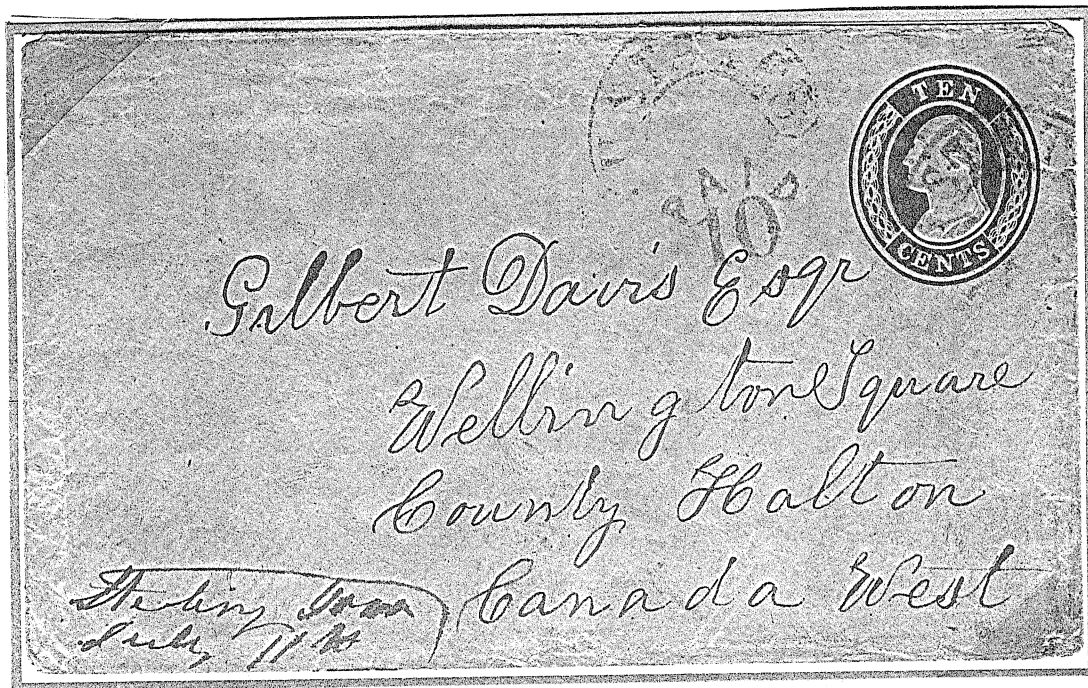 TEN
CENTS
PAID
10
Gilbert Davis Esqr
Wellington Square
County Halton
Canada West
Sterling Iowa
July 11th